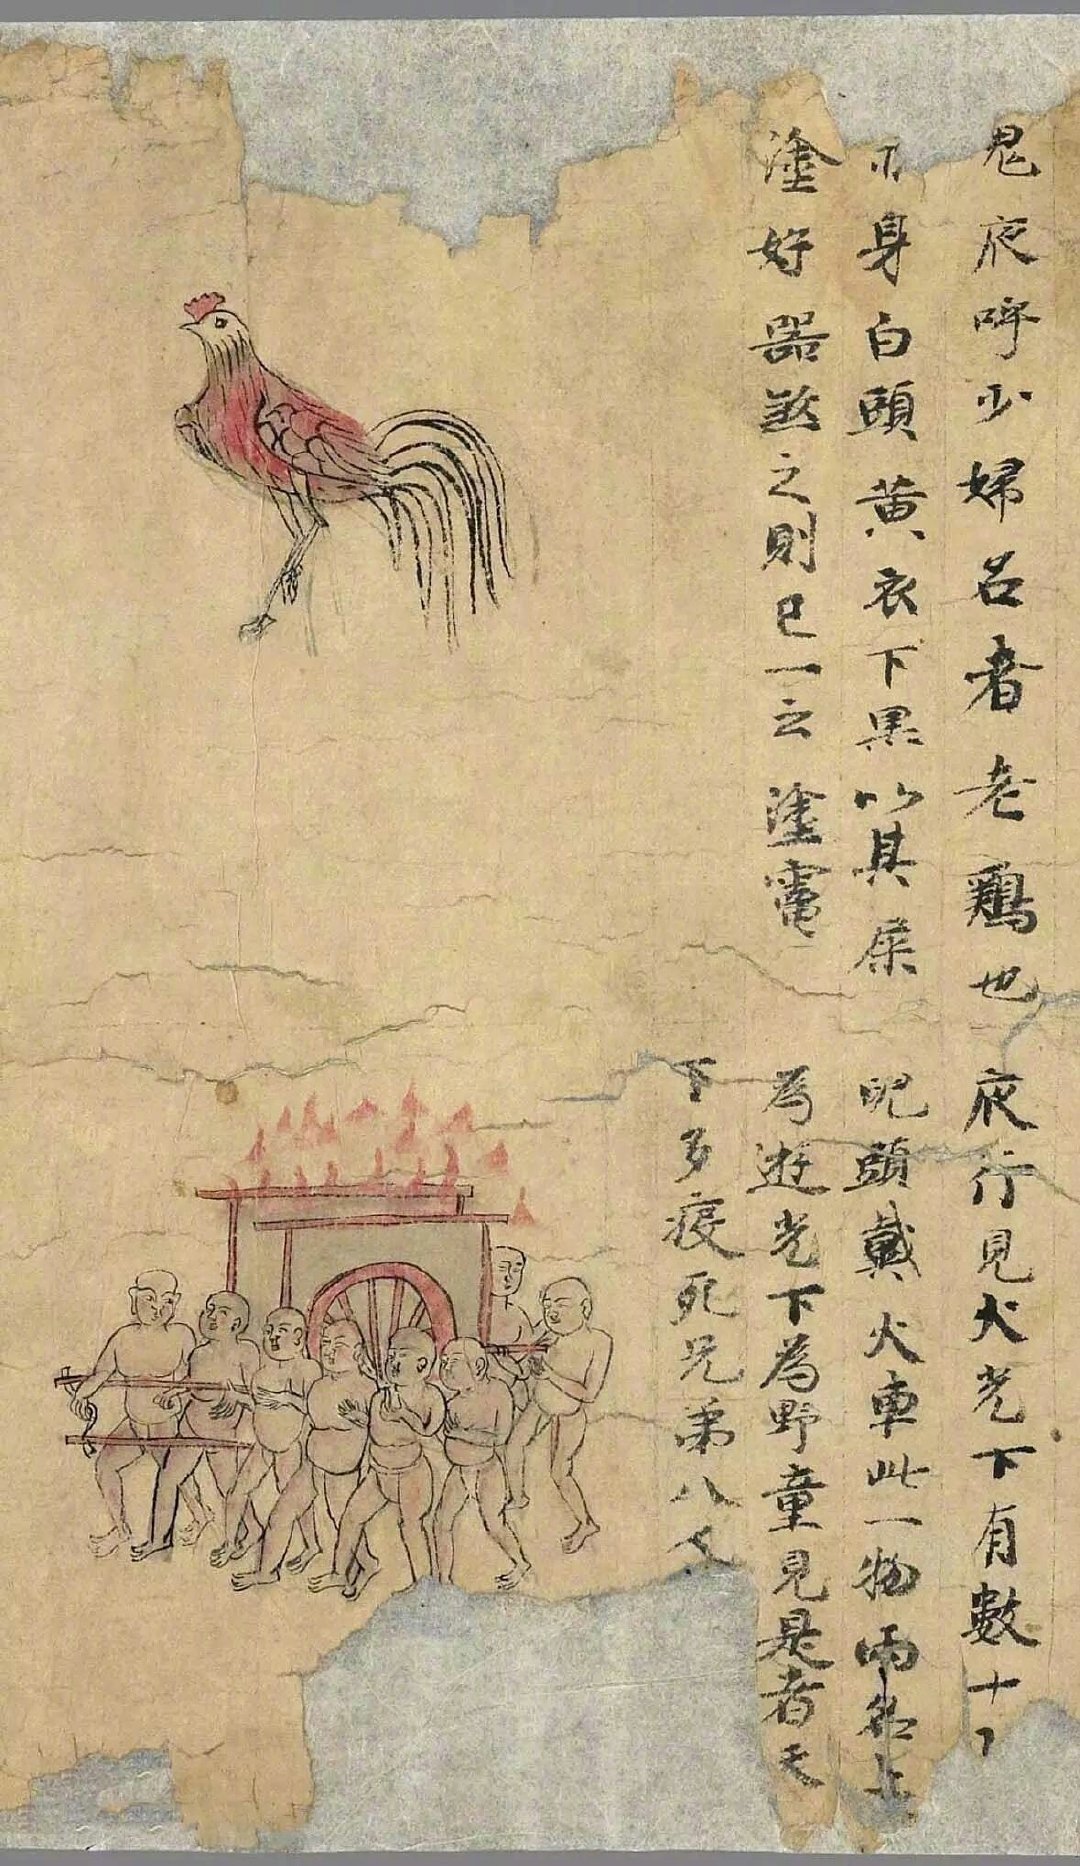 鬼夜呼少婦名者老鶏也
身白頭黄衣下黒以其屎
塗好器煞之則已一云塗竈
夜行見火光下有數十
兒頭戴火車此一物兩名上
為遊光下為野童見是者天
下多疫死兄弟八人